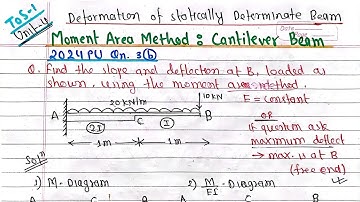 TOS-I
Unit-4
Deformation of statically Determinate Beam
Moment Area Method : Cantilever Beam
2024 PU Qn. 3(b)
Q. Find the slope and deflection at B, loaded as
shown, using the moment area method.
E = constant
20 kN/m
10 kN
A
B
C
2I
I
1m
1m
OR
if question ask
maximum deflect
→ max. u at B
(free end)
Sol^n
1) M-Diagram
2) M/EI - Diagram